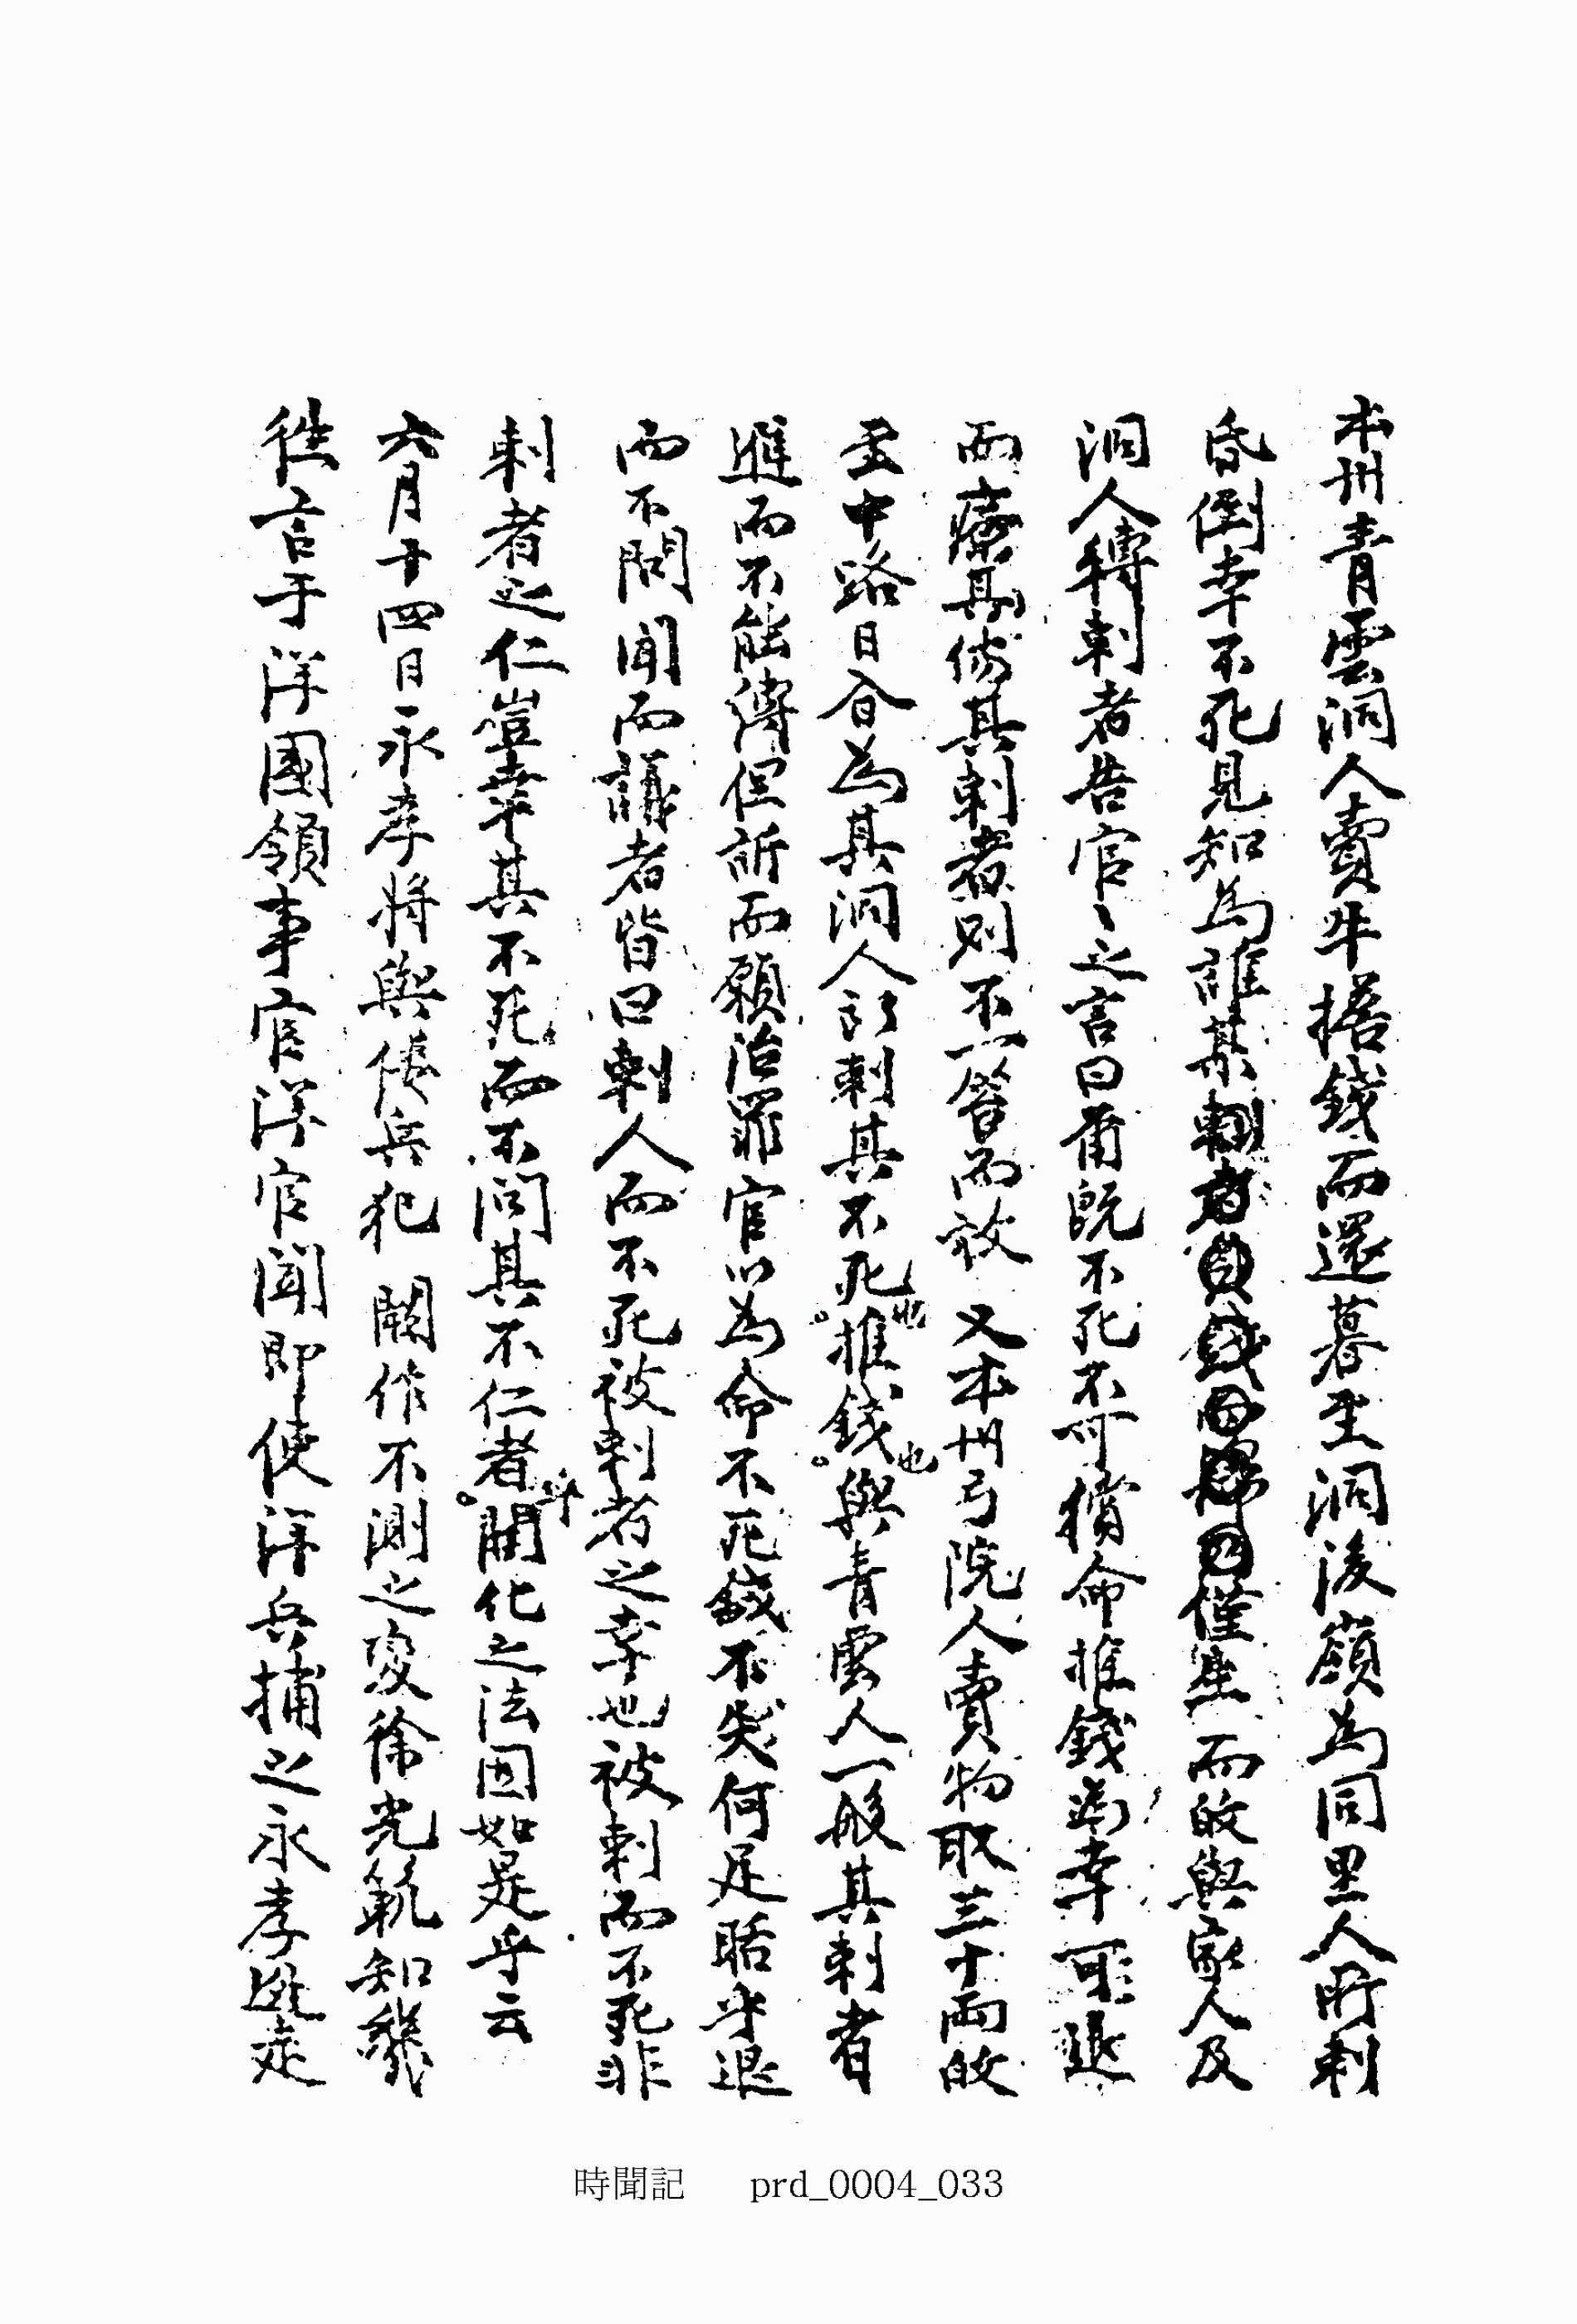 本州青雲洞人賣牛擔錢而還暮至洞後嶺為同里人所刺
昏倒幸不死見知為誰某刺者負錢僅生而故與家人及
洞人縛刺者告官〻之言曰爾旣不死不可償命推錢為幸可退
而療其傷其刺者則不一笞而放 又本州弓院人賣物取三十兩故
至中路日合為其洞人所刺其不死也推錢也與青雲人一般其刺者
進而不能縛但訴而願治罪官以為命不死錢不失何足恬乎退
而不問聞而議者皆曰刺人而不死被刺者之幸也被刺而不死非
刺者之仁豈幸其不死而不問其不仁者乎開化之法固如是乎云
六月十四日永孝將與倭兵犯 闕作不測之変徐光範知幾
徃言于洋國領事官洋官聞即使洋兵捕之永孝逃走
時聞記 prd_0004_033